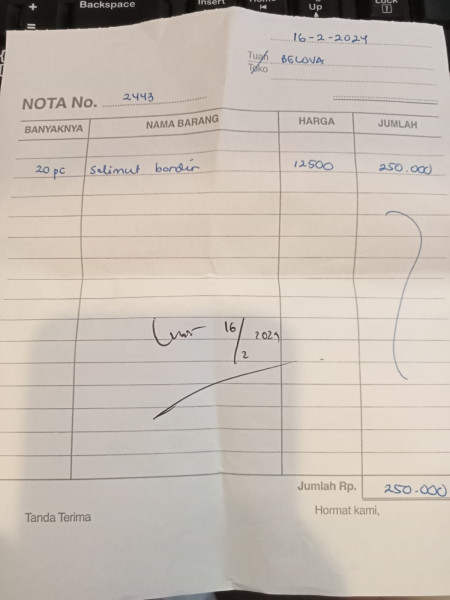 Backspace
Insert
Up
16-2-2024
Tuan BELOVA
Toko
NOTA No. 2443
BANYAKNYA NAMA BARANG HARGA JUMLAH
20 pc Selimut bordir 12500 250.000
16/2 2024
Jumlah Rp. 250.000
Tanda Terima Hormat kami,